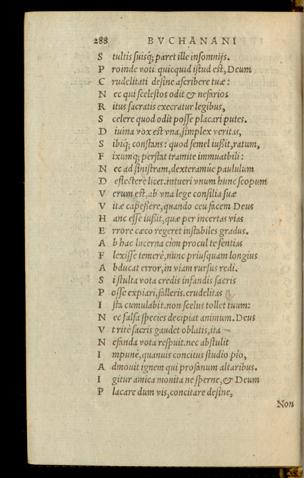 288 BVCHANANI
S tultis suisq; paret ille insomnijs.
P roinde voti quicquid istud est, Deum
C rudelitati desine ascribere tuæ:
N ec qui scelestos odit & nefarios
R itus sacratis execratur legibus,
S celere quod odit posse placari putes.
D iuina vox est vna, simplex veritas,
S ibiq; constans: quod semel iussit, ratum,
F ixumq; perstat tramite immutabili:
N ec ad sinistram, dexteramue paululum
D eflectere licet. intueri vnum hunc scopum
V erum est, ab vna lege consilia suæ
V itæ capessere, quando ceu facem Deus
H anc esse iussit, quæ per incertas vias
E rrore cæco regeret instabiles gradus.
A b hac lucerna cùm procul te sentias
F lexisse temerè, nunc priusquam longius
A bducat error, in viam rursus redi.
S i stulta vota credis infandis sacris
P osse expiari, falleris. crudelitas
I sta cumulabit. non scelus tollet tuum:
N ec falsa species decipiat animum. Deus
V t ritè sacris gaudet oblatis, ita
N efanda vota respuit. nec abstulit
I mpunè, quamuis concitus studio pio,
A dmouit ignem qui profanum altaribus.
I gitur amica monita ne sperne, & Deum
P lacare dum vis, concitare desine,
Non